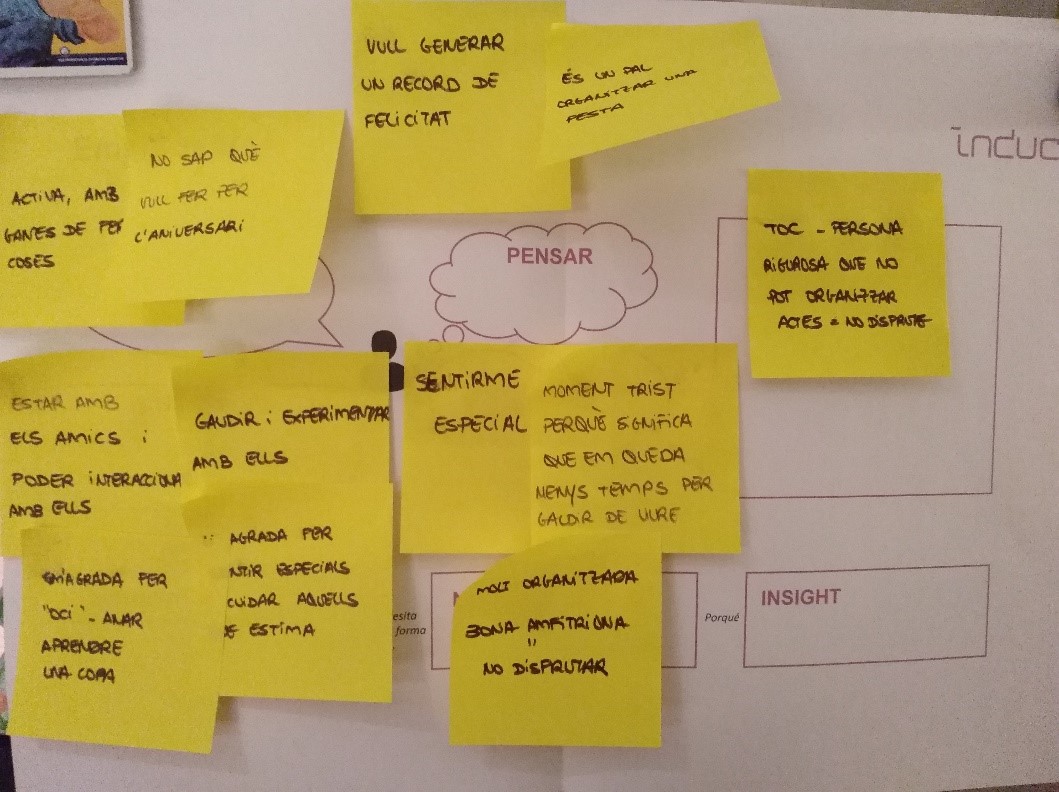 VULL GENERAR
UN RECORD DE
FELICITAT
ÉS UN PAL
ORGANITZAR UNA
FESTA
ACTIVA, AMB
GANES DE FER
COSES
NO SAP QUÈ
VULL FER PER
L'ANIVERSARI
induc
PENSAR
TOC - PERSONA
RIGUROSA QUE NO
POT ORGANITZAR
ACTES = NO DISFRUTE
ESTAR AMB
ELS AMICS i
PODER iNTERACCIONA
AMB ELLS
GAUDIR i EXPERIMENTAR
AMB ELLS
SENTIRME
ESPECIAL
MOMENT TRIST
PERQUÈ SIGNIFICA
QUE EM QUEDA
MENYS TEMPS PER
GALDIR DE VIURE
EM'AGRADA FER
"OCI" - ANAR
APRENDRE
UNA COPA
AGRADA FER
NTIR ESPECIALS
CUIDAR AQUELLS
E ESTIMA
esita
forma
MOLT ORGANITZADA
BONA AMFITRIONA
=
NO DISFRUTAR
Porqué
INSIGHT